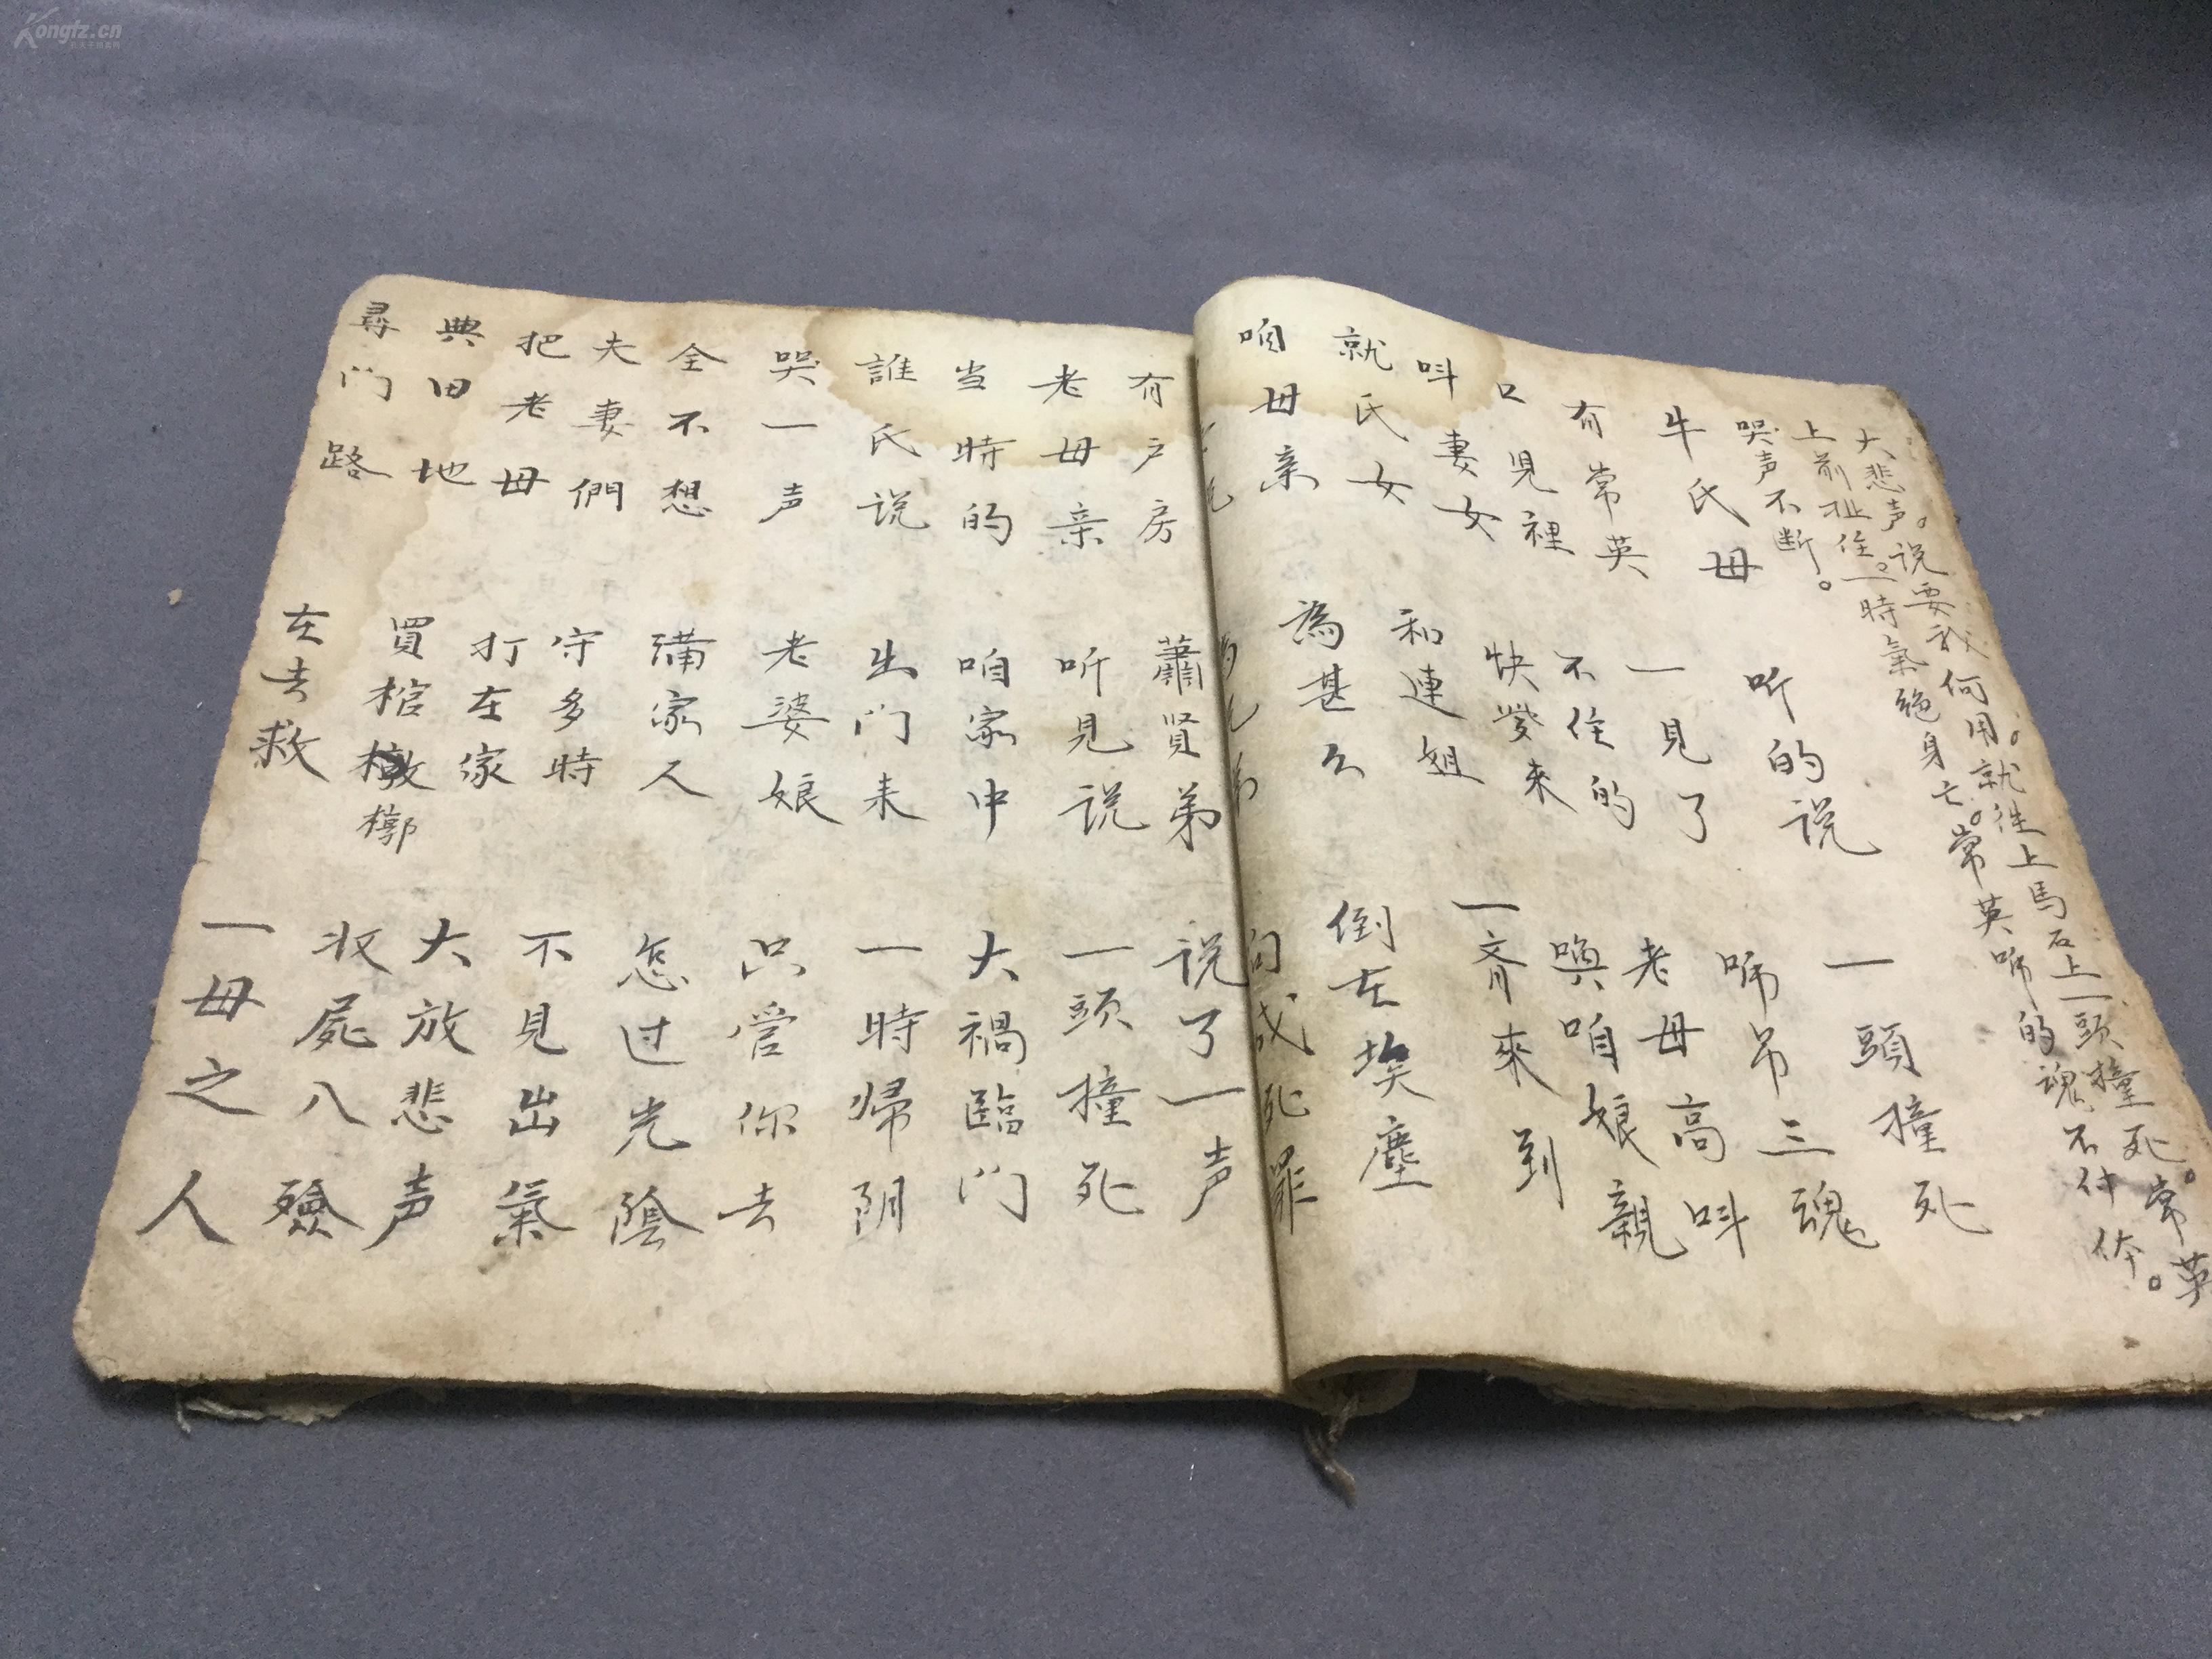 大悲声。说要我何用。就往上馬石上一頭撞死。常英
上前扯住。一時氣絕身亡。常英唬的魂不付体。
哭声不断。
牛氏母 听的说 一頭撞死
有常英 一見了 唬吊三魂
口児裡 不住的 老母高叫
叫妻女 快来 喚咱娘親
就氏女 和連姐 一齊來到
咱母亲 為甚么 倒在埃塵
問成死罪
有户房 蕭贤弟 说了一声
老母亲 听見说 一頭撞死
当時的 咱家中 大禍臨门
誰氏说 出门来 一時帰阴
哭一声 老婆娘 只管你去
全不想 满家人 怎过光陰
夫妻們 守多時 不見出氣
把老母 打在家 大放悲声
典田地 買棺槨 收屍入殮
尋门路 在去救 一母之人
Kongfz.cn